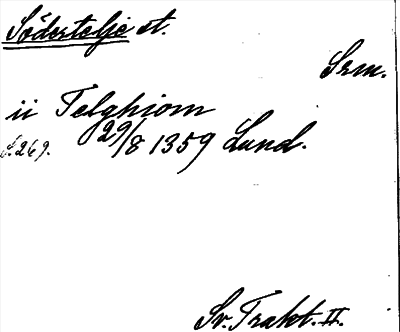 Södertelje st.
Srm.
ii Telghiom
29/8 1359 Lund.
S. 269.
Sv. Trakt. II.